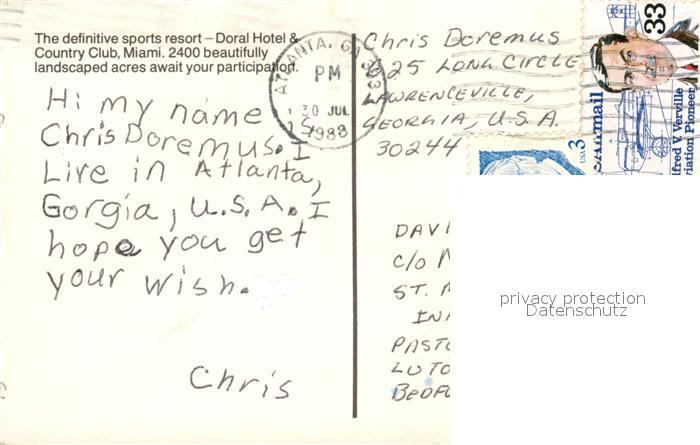 The definitive sports resort – Doral Hotel &
Country Club, Miami. 2400 beautifully
landscaped acres await your participation.
Hi my name
Chris Doremus. I
Live in Atlanta,
Gorgia, U.S.A. I
hope you get
your wish.
Chris
ATLANTA, GA 303
PM
30 JUL
1988
Chris Doremus
625 LONG CIRCLE
LAWRENCEVILLE,
GEORGIA, U.S.A.
30244
33
USAirmail
Alfred V. Verville
Aviation Pioneer
USA 3
DAVI
C/O
ST.
PASTO
LUTO
BEDFO
privacy protection
Datenschutz